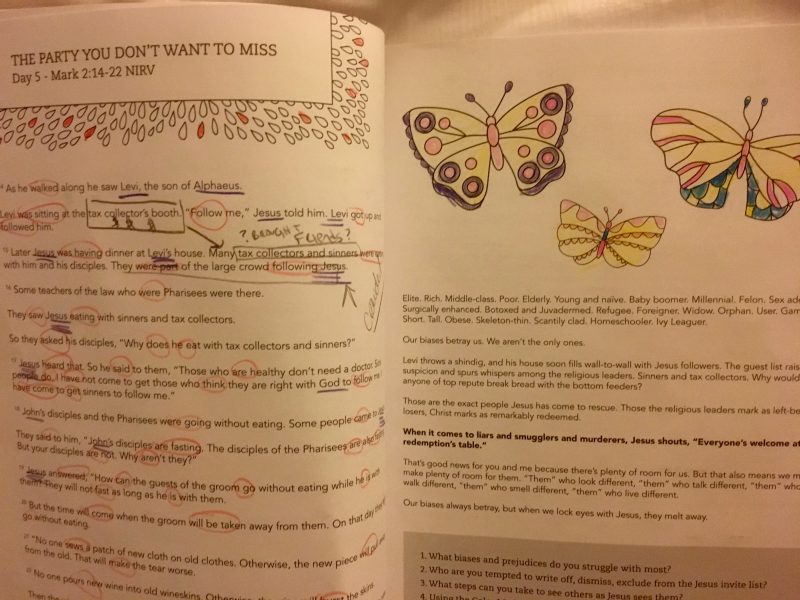 THE PARTY YOU DON'T WANT TO MISS
Day 5 - Mark 2:14-22 NIRV
14 As he walked along he saw Levi, the son of Alphaeus.
Levi was sitting at the tax collector's booth. "Follow me," Jesus told him. Levi got up and
followed him.
? BROUGHT
Friends?
15 Later Jesus was having dinner at Levi's house. Many tax collectors and sinners were
with him and his disciples. They were part of the large crowd following Jesus.
16 Some teachers of the law who were Pharisees were there.
They saw Jesus eating with sinners and tax collectors.
So they asked his disciples, "Why does he eat with tax collectors and sinners?"
17 Jesus heard that. So he said to them, "Those who are healthy don't need a doctor. Sick
people do. I have not come to get those who think they are right with God to follow me. I
have come to get sinners to follow me."
18 John's disciples and the Pharisees were going without eating. Some people came to
They said to him, "John's disciples are fasting. The disciples of the Pharisees are also fasting.
But your disciples are not. Why aren't they?"
19 Jesus answered, "How can the guests of the groom go without eating while he is with
them? They will not fast as long as he is with them.
20 But the time will come when the groom will be taken away from them. On that day they
go without eating.
21 "No one sews a patch of new cloth on old clothes. Otherwise, the new piece will pull
from the old. That will make the tear worse.
22 No one pours new wine into old wineskins. Otherwise, the skins.
Then the
Elite. Rich. Middle-class. Poor. Elderly. Young and naïve. Baby boomer. Millennial. Felon. Sex
Surgically enhanced. Botoxed and Juvadermed. Refugee. Foreigner. Widow. Orphan. User.
Short. Tall. Obese. Skeleton-thin. Scantily clad. Homeschooler. Ivy Leaguer.
Our biases betray us. We aren't the only ones.
Levi throws a shindig, and his house soon fills wall-to-wall with Jesus followers. The guest list
suspicion and spurs whispers among the religious leaders. Sinners and tax collectors. Why would
anyone of top repute break bread with the bottom feeders?
Those are the exact people Jesus has come to rescue. Those the religious leaders mark as
losers, Christ marks as remarkably redeemed.
When it comes to liars and smugglers and murderers, Jesus shouts, "Everyone's welcome at
redemption's table."
That's good news for you and me because there's plenty of room for us. But that also means we
make plenty of room for them. "Them" who look different, "them" who talk different, "them" who
walk different, "them" who smell different, "them" who live different.
Our biases always betray, but when we lock eyes with Jesus, they melt away.
1. What biases and prejudices do you struggle with most?
2. Who are you tempted to write off, dismiss, exclude from the Jesus invite list?
3. What steps can you take to see others as Jesus sees them?
4. Using the